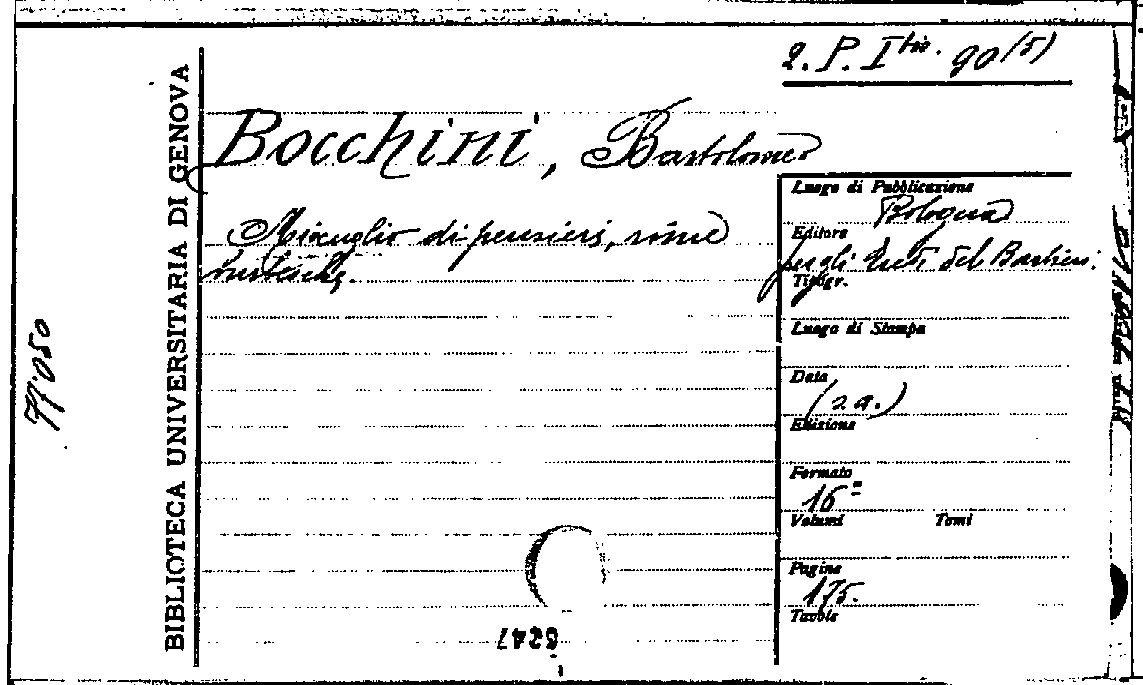 2. P. I bis. 90(5)
BIBLIOTECA UNIVERSITARIA DI GENOVA
Bocchini, Bartolomeo
Miscuglio di pensieri, rime
burlesche.
Luogo di Pubblicazione
Bologna
Editore
per gli Eredi del Barbieri.
Tipogr.
Luogo di Stampa
Data
(s.a.)
Edizione
Formato
16º
Volumi Tomi
Pagine
175.
Tavole
6247